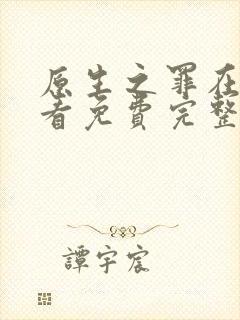 原生之罪在
看免費完整
譚宇宸